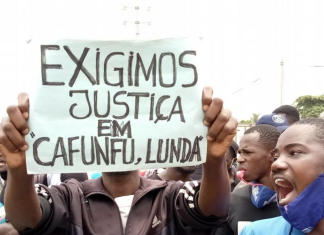 EXIGIMOS
JUSTIÇA
EM
"CAFUNFU, LUNDA